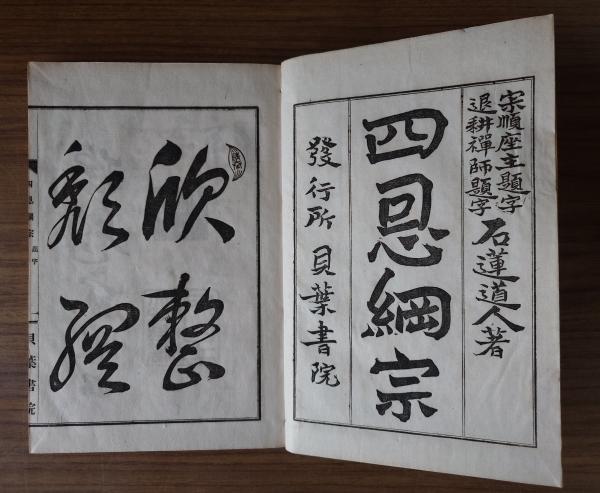 寂順座主題字
退耕禪師題字
石蓮道人著
四恩綱宗
發行所 貝葉書院
欣整
頽綱
四恩綱宗 題字 一 貝葉書院